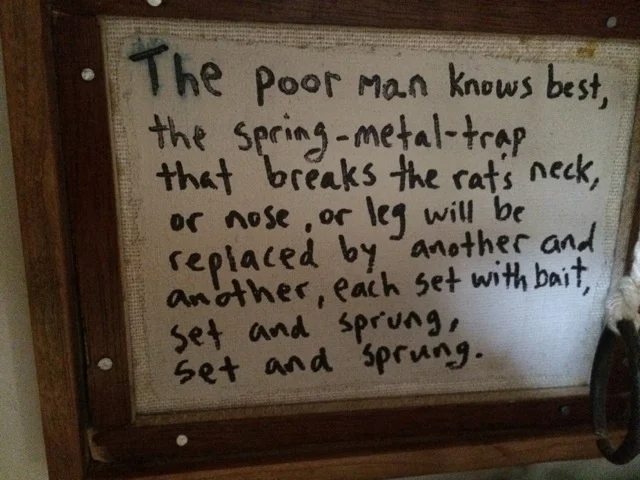 The poor man knows best,
the spring-metal-trap
that breaks the rat's neck,
or nose, or leg will be
replaced by another and
another, each set with bait,
set and sprung,
set and sprung.